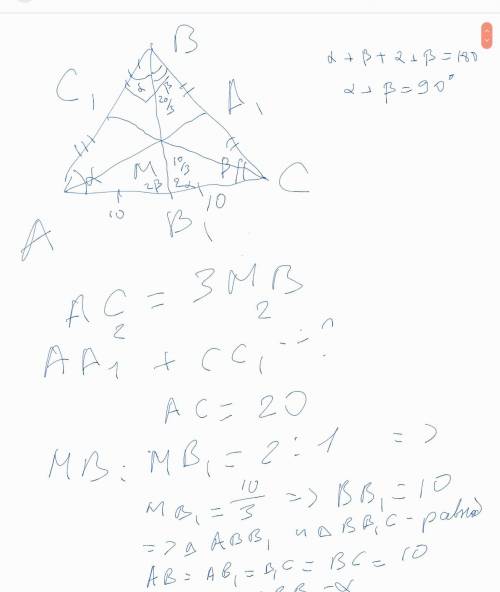 B
α + β + α + β = 180
α + β = 90°
C₁
α
β
20/3
A₁
α
M
10/3
β
C
2β
2α
10
10
A
B₁
AC = 3MB
2 2
AA₁ + CC₁ - ?
AC = 20
MB : MB₁ = 2 : 1 =>
MB₁ = 10/3 => BB₁ = 10
=> △ABB₁ и △BB₁C - равноб
AB = AB₁ = B₁C = BC = 10